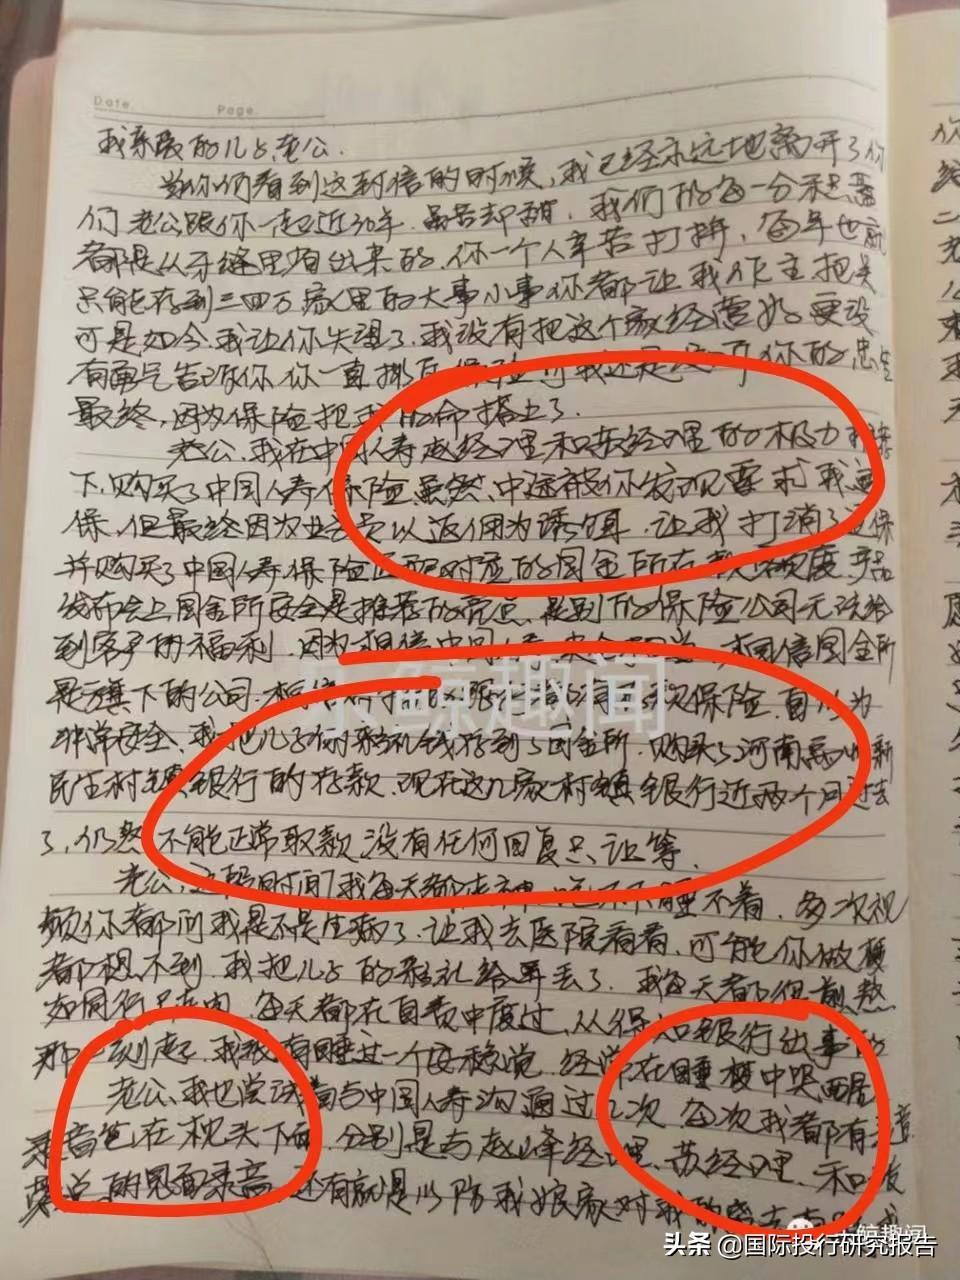 Date. Page.
我亲爱的儿子,老公.
当你们看到这封信的时候,我已经永远地离开了你
们老公跟你一起近30年.虽苦却甜,我们的每一分积蓄
都是从牙缝里省出来的.你一个人辛苦打拼,每年也就
只能存到三四万 家里的大事小事你都让我作主把关
可是如今.我让你失望了.我没有把这个家经营好更没
有勇气告诉你 你一直排斥保险可我还是没听你的忠告
最终,因为保险把我的命搭上了.
老公.我在中国人寿赵经理和苏经理的极力推荐
下.购买了中国人寿保险.虽然中途被你发现要求我退
保.但最终因为业务员以返佣为诱饵.让我打消了退保
并购买了中国人寿保险匹配对应的国金所存款额度.产品
发布会上国金所安全是推荐的亮点.是别的保险公司无法给
到客户的福利.因为相信中国人寿 相信国金所
是旗下的公司. 银行 存款保险.自以为
非常安全、我把儿子的彩礼钱存到了国金所.购买了河南禹州新
民生村镇银行的存款.现在这几家村镇银行近两个月过去
了,仍然不能正常取款.没有任何回复只让等.
老公,这段时间我每天都走神,吃不下睡不着.多次视
频你都问我是不是生病了.让我去医院看看,可能你做梦
都想不到.我把儿子的彩礼给弄丢了.我每天都很煎熬.
如同行尸走肉.每天都在自责中度过,从得知银行出事的
那一刻起.我没有睡过一个安稳觉.经常在睡梦中哭醒
老公、我也尝试着与中国人寿沟通过几次 每次我都有录音
录音笔在枕头下面,分别是与赵峰经理、苏经理、和
总的见面录音 还有就是以防我娘家对我的
大鲸趣闻
大鲸趣闻
头条 @国际投行研究报告